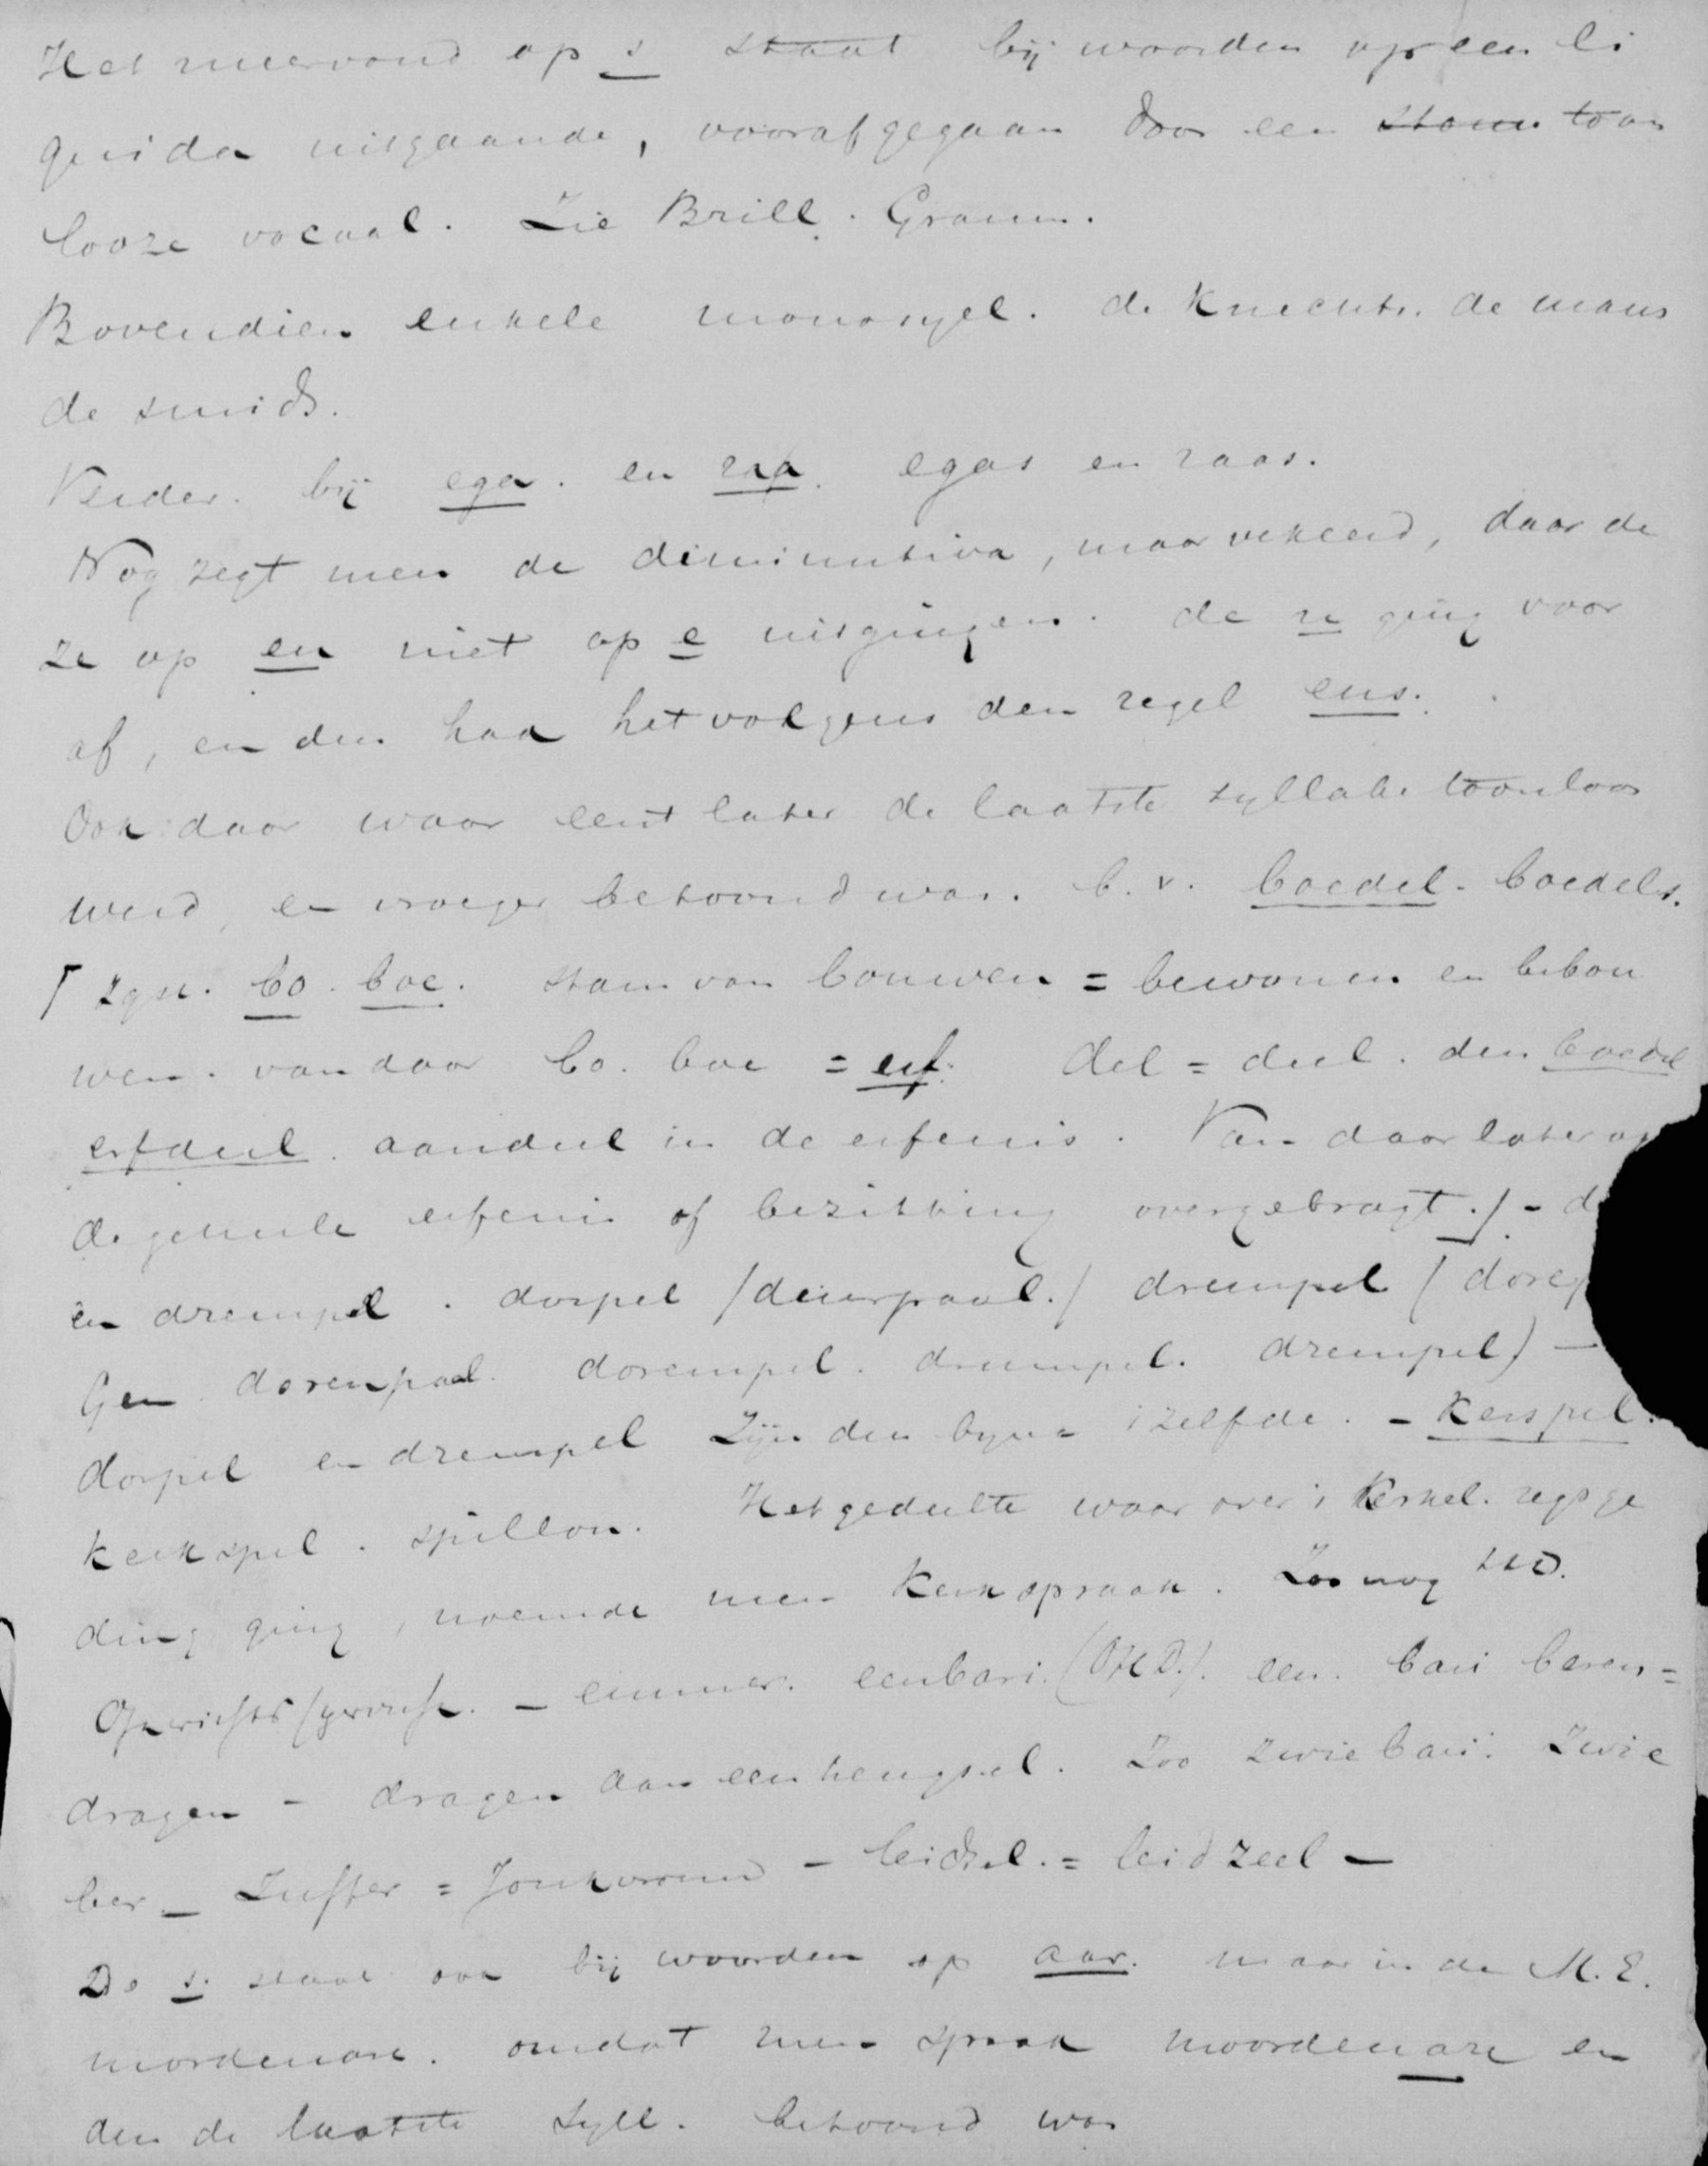 Het meervoud op s staat bij woorden op een li
quida uitgaande, voorafgegaan door een stom toon
looze vocaal. Zie Brill. Gramm.
Bovendien enkele monosyl. de knechts. de mans
de smids.
Verder. bij ega. en raa. egas en raas.
Nog zegt men de diminutiva, maar verkeerd, daar de
ze op en niet op e uitgingen. de n ging voor
af, en dus had het volgens den regel ens.
Ook daar waar eerst later de laatste syllabe toonloos
werd, en vroeger betoond was. b.v. boedel. boedels.
bo. boe. stam van bouwen = bewonen en bebou
wen. van daar bo. boe = erf. del = deel. dus boedel
erfdeel. aandeel in de erfenis. Van daar later op
de geheele erfenis of bezitting overgebragt./ - d
en drempel. dorpel /deurpaal./ drempel (dorep
Gen. dorenpaal. dorempel. drempel. drempel) -
dorpel en drempel zijn dus bijna 't zelfde. - Kerspel.
kerkspel. spillon. Het gedeelte waar over 't kerkel. regsge
ding ging, noemde men kerkspraak. Zoo nog HD.
Gerichtssprache. - emmer. eenbari. (OHD.). een. bari beren =
dragen - dragen aan een hengsel. Zoo zwiebari. Zwie
ber - Juffer = Jonkvrouw - leidsel. = leidzeel -
De s. staat ook bij woorden op aar. maar in de M.E.
mordenare. omdat men sprak moordenare en
dus de laatste syll. betoond was